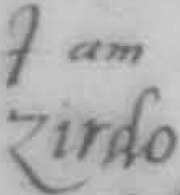 I am
Zirdo